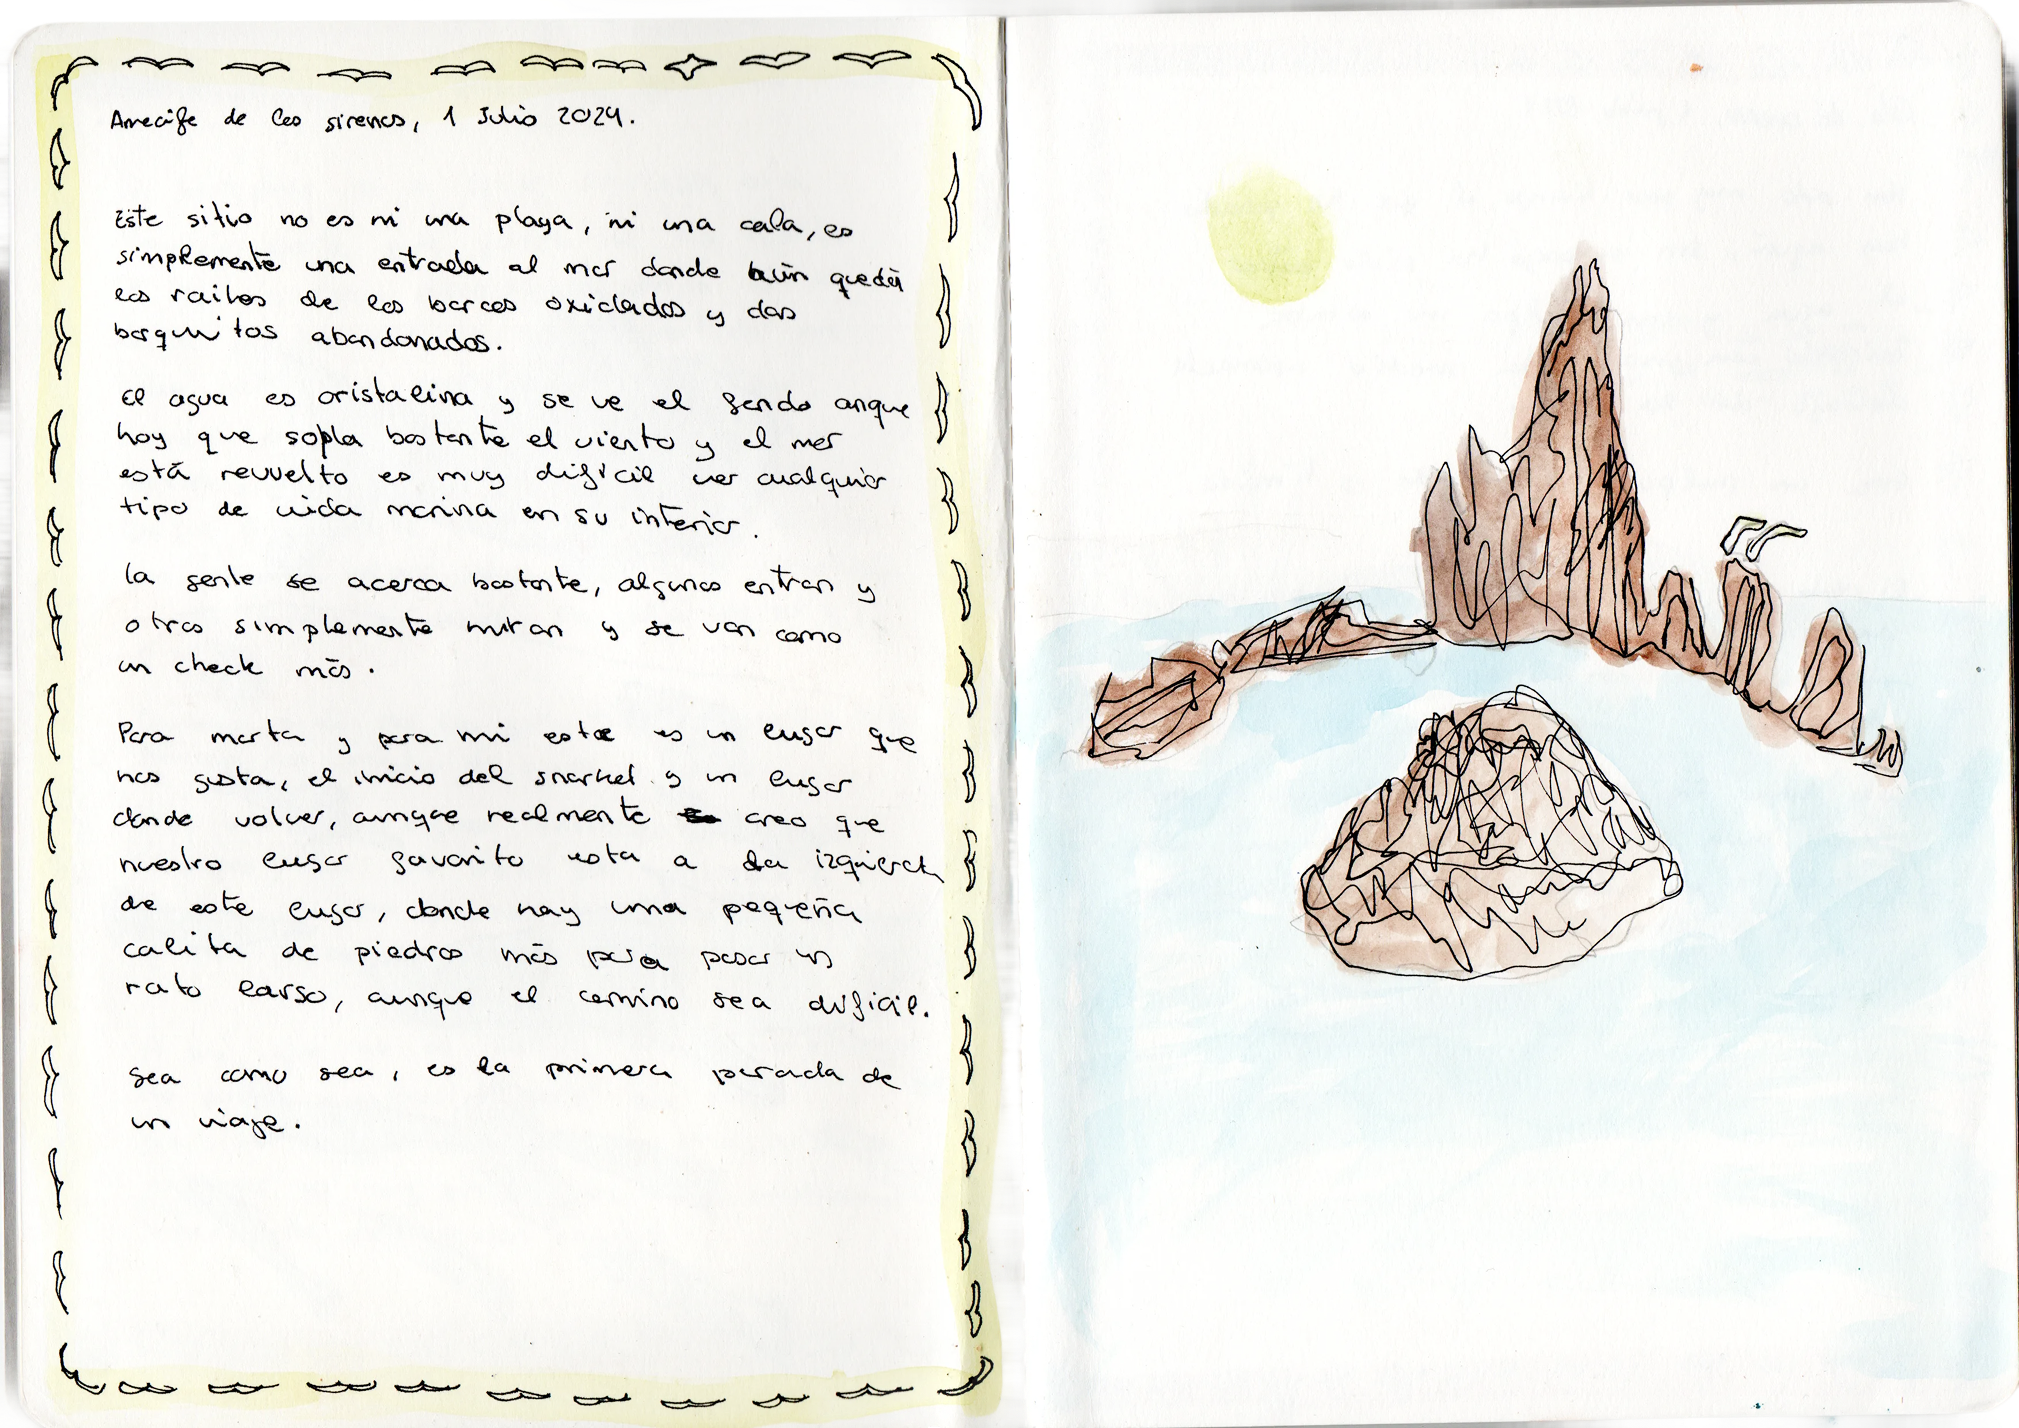 Arrecife de las sirenas, 1 Julio 2024.
Este sitio no es ni una playa, ni una cala, es
simplemente una entrada al mar donde aún quedan
los railes de los barcos oxidados y dos
barquitos abandonados.
El agua es cristalina y se ve el fondo anque
hoy que sopla bastante el viento y el mar
está revuelto es muy dificil ver cualquier
tipo de vida marina en su interior.
La gente se acerca bastante, algunos entran y
otros simplemente miran y se van como
un check más.
Para marta y para mi este es un lugar que
nos gusta, el inicio del snorkel y un lugar
donde volver, aunque realmente creo que
nuestro lugar favorito esta a la izquierda
de este lugar, donde hay una pequeña
calita de piedras más para pasar un
rato largo, aunque el camino sea dificil.
Sea como sea, es la primera parada de
un viaje.